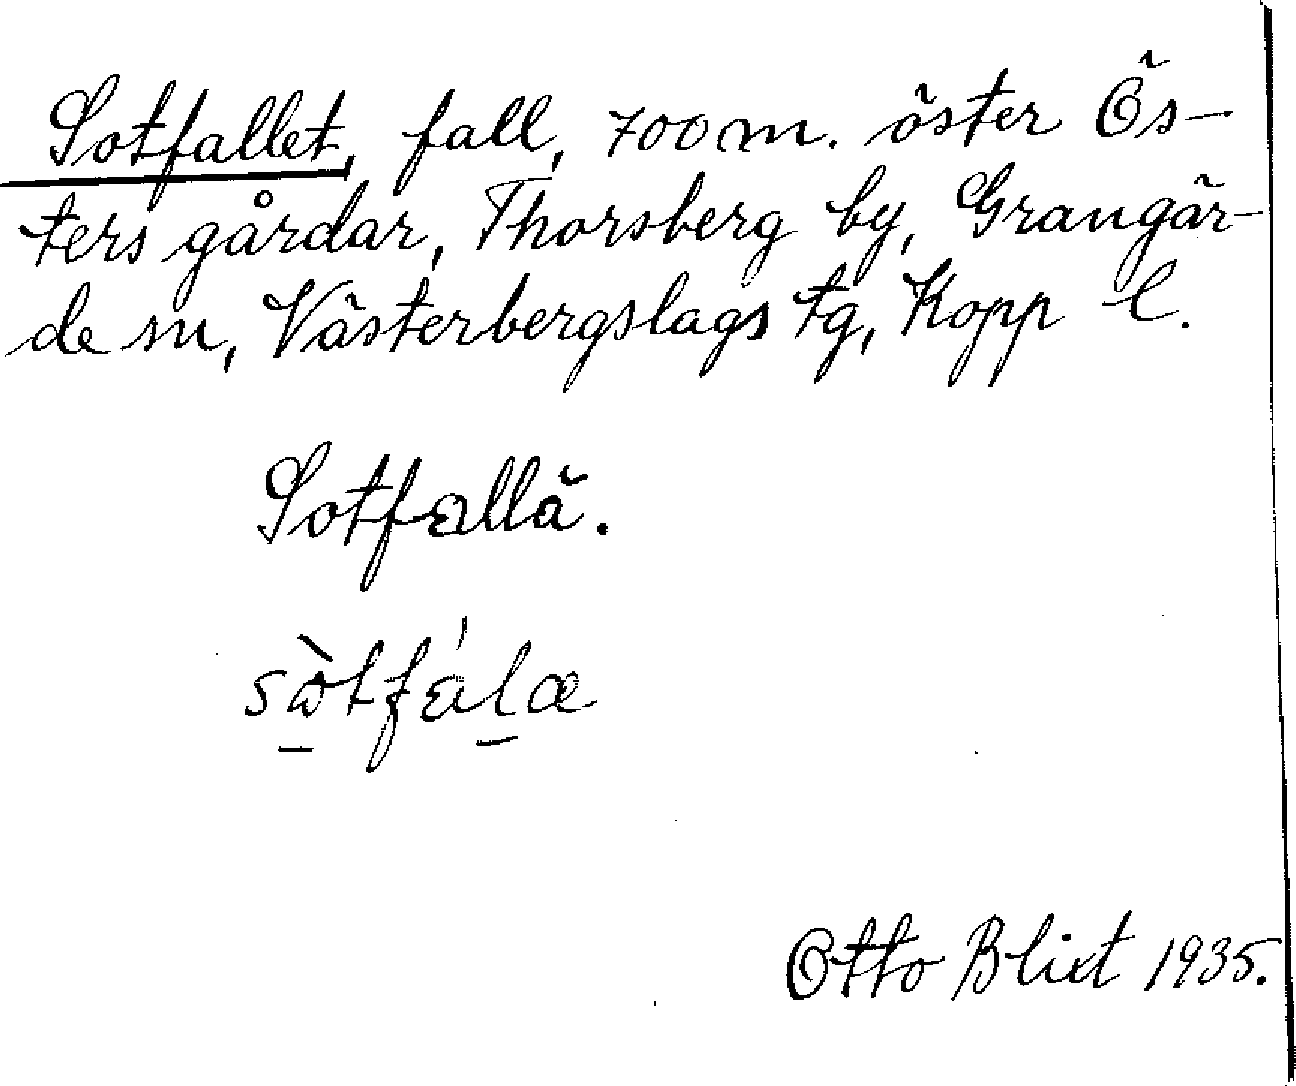 Sotfallet, fall, 700 m. öster Ös-
ters gårdar, Thorsberg by, Grangär-
de sn, Västerbergslags tg, Kopp l.
Sotfallä.
sòtfálæ
Otto Blixt 1935.